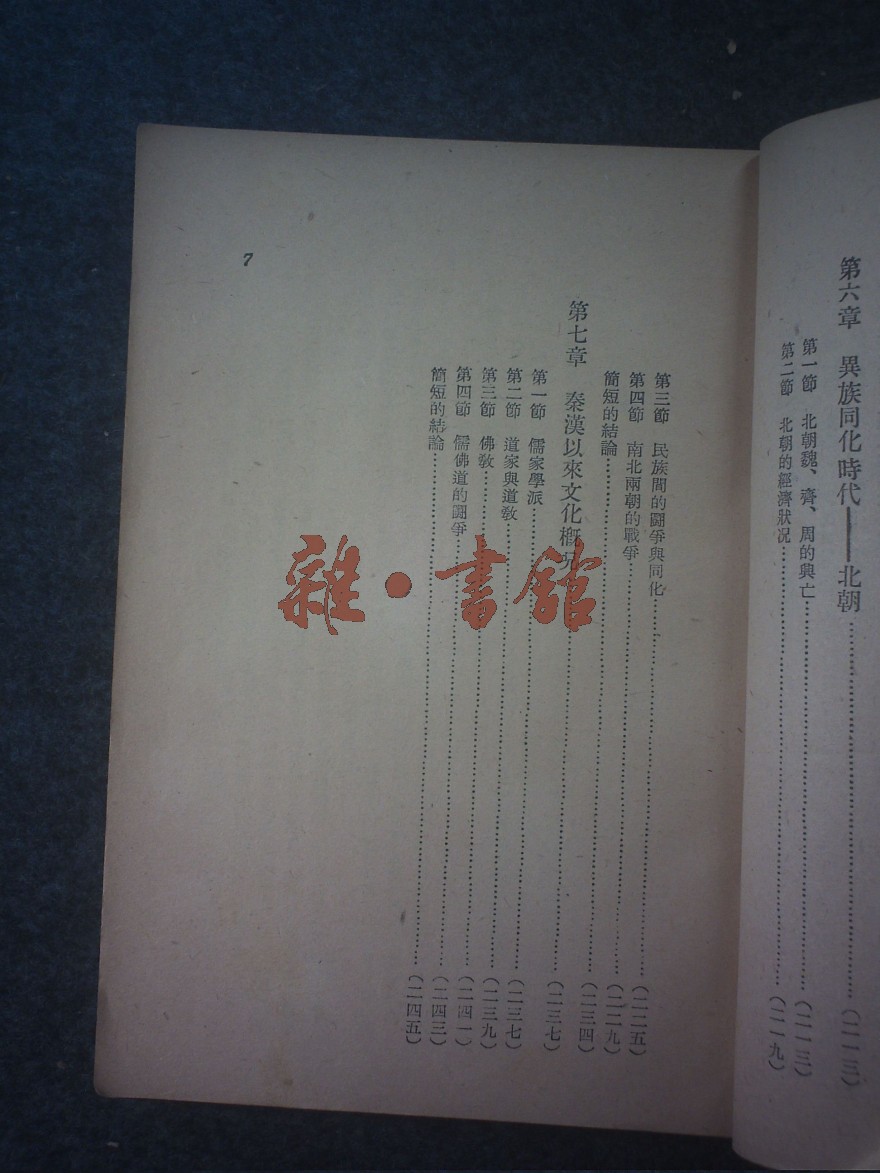 第六章　異族同化時代——北朝……（二一三）
第一節　北朝魏、齊、周的興亡……（二一三）
第二節　北朝的經濟狀况……（二一九）
第三節　民族間的鬪爭與同化……（二二五）
第四節　南北兩朝的戰爭……（二二九）
簡短的結論……（二三四）
第七章　秦漢以來文化概况……（二三七）
第一節　儒家學派……（二三七）
第二節　道家與道敎……（二三九）
第三節　佛敎……（二四一）
第四節　儒佛道的鬪爭……（二四三）
簡短的結論……（二四五）
7
雜·書館